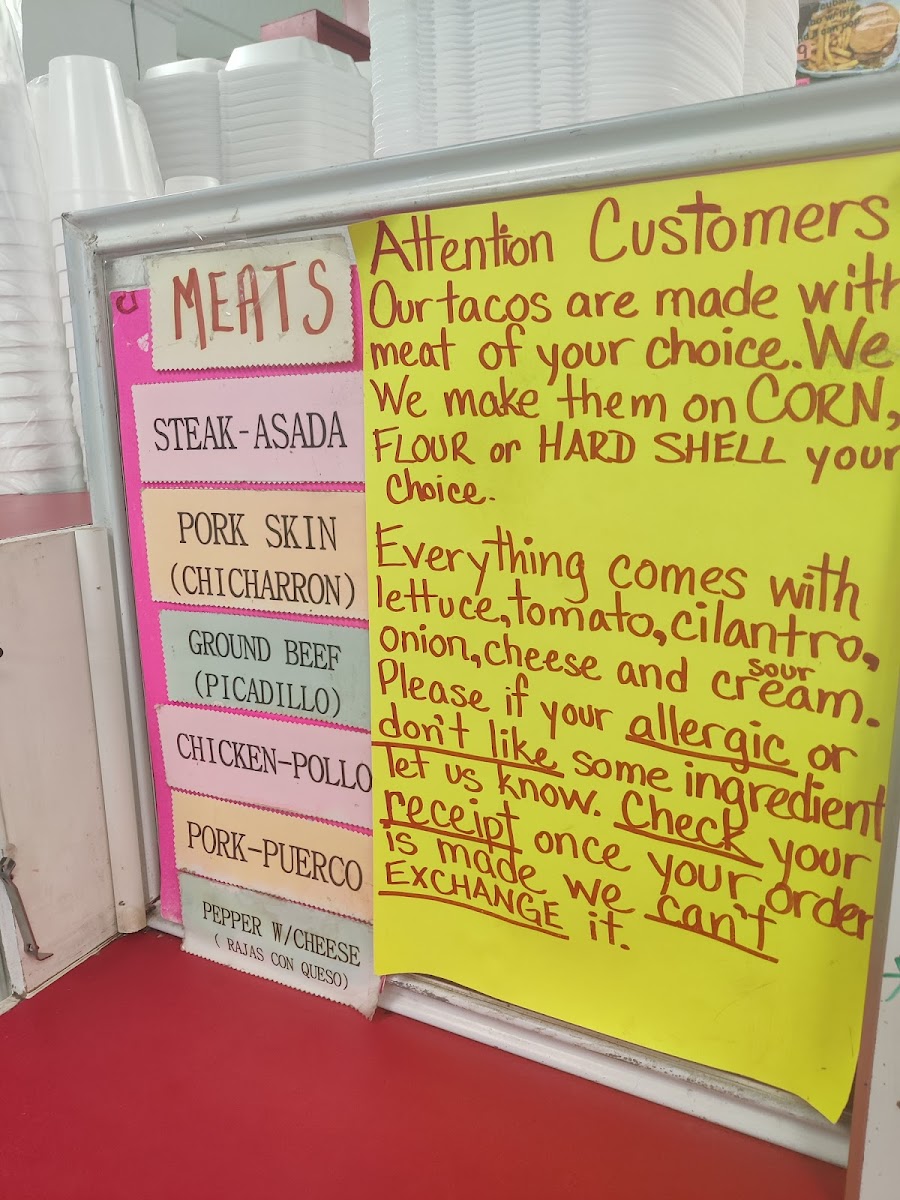 MEATS
STEAK-ASADA
PORK SKIN
(CHICHARRON)
GROUND BEEF
(PICADILLO)
CHICKEN-POLLO
PORK-PUERCO
PEPPER W/CHEESE
( RAJAS CON QUESO)
Attention Customers
Our tacos are made with
meat of your choice. We
We make them on CORN,
FLOUR or HARD SHELL your
choice.
Everything comes with
lettuce, tomato, cilantro,
onion, cheese and sour cream.
Please if your allergic or
don't like some ingredient
let us know. Check your
receipt once your order
is made we can't
EXCHANGE it.